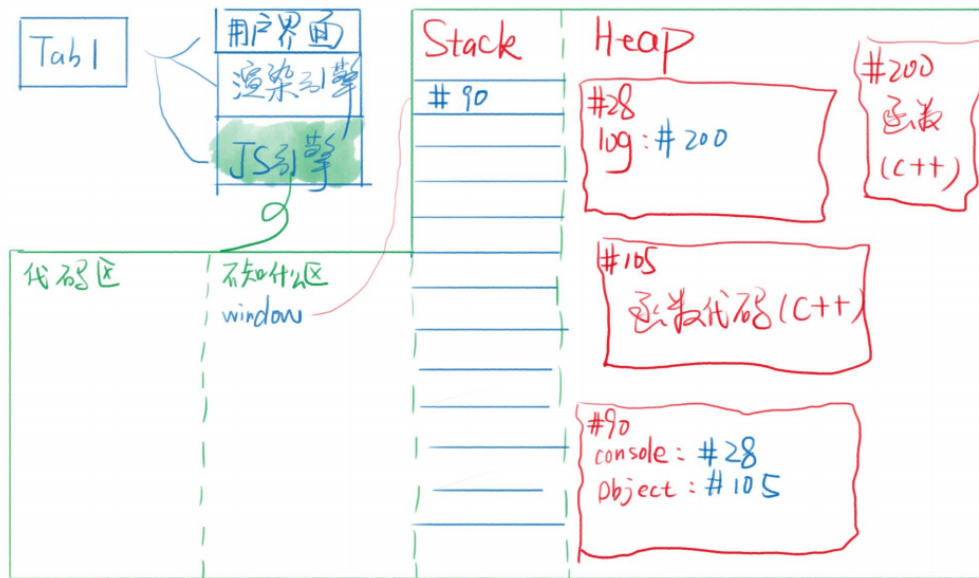 Tab1
用户界面
渲染引擎
JS引擎
代码区
不知什么区
window
Stack
#90
Heap
#28
log: #200
#200
函数
(C++)
#105
函数代码(C++)
#90
console: #28
Object: #105